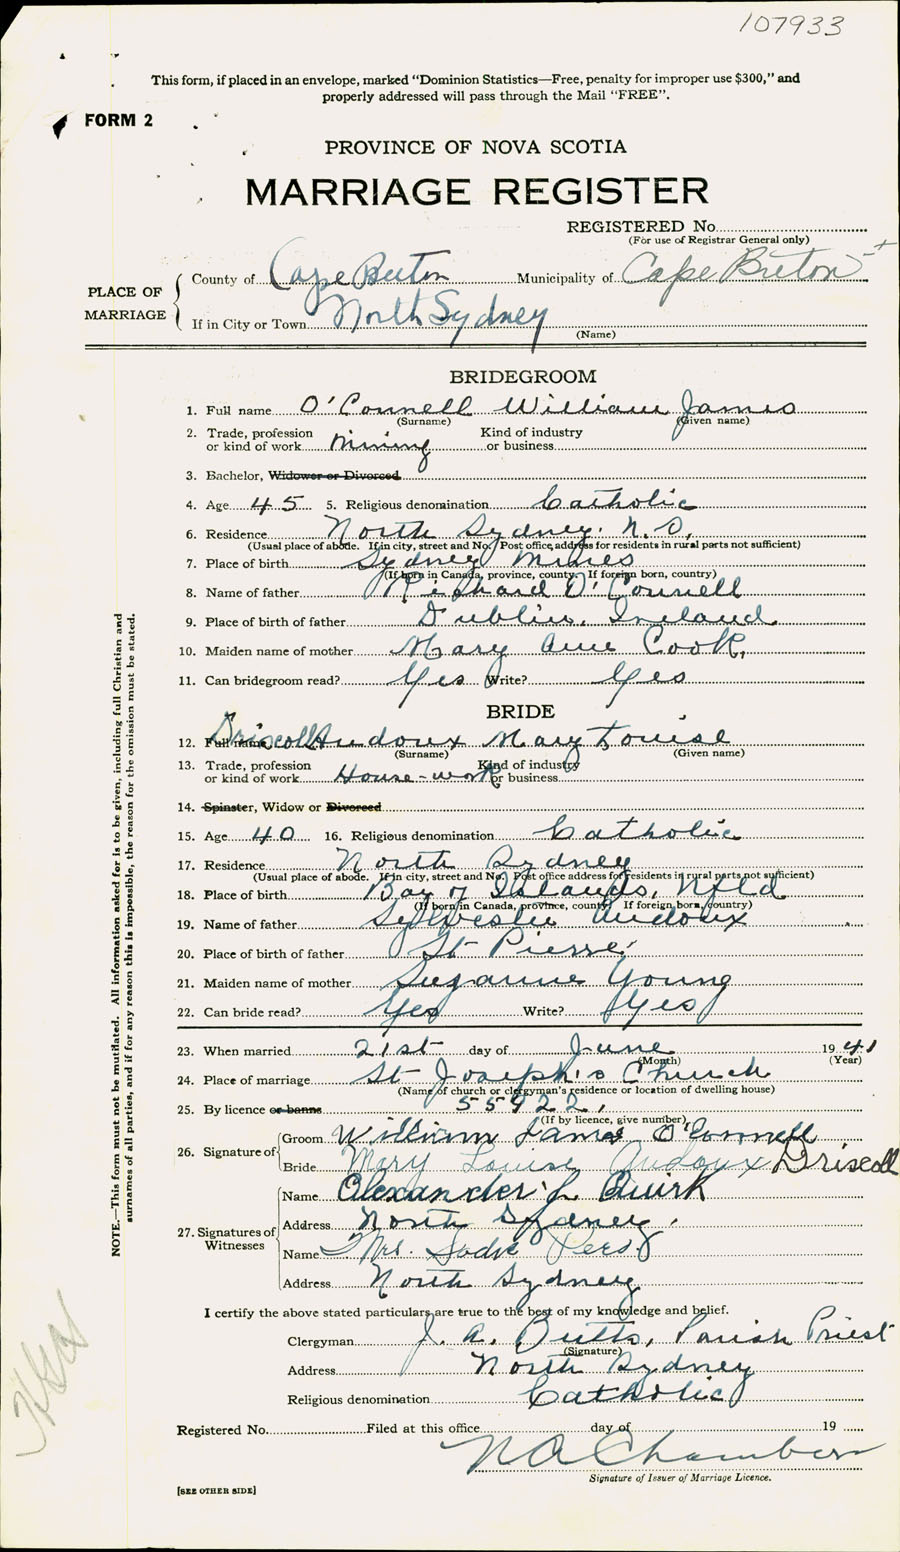 107933
This form, if placed in an envelope, marked "Dominion Statistics—Free, penalty for improper use $300," and
properly addressed will pass through the Mail "FREE".
FORM 2
PROVINCE OF NOVA SCOTIA
MARRIAGE REGISTER
REGISTERED No.
(For use of Registrar General only)
PLACE OF MARRIAGE
County of Cape Breton Municipality of Cape Breton
If in City or Town North Sydney
(Name)
BRIDEGROOM
1. Full name O'Connell William James
(Surname) (Given name)
2. Trade, profession or kind of work Mining Kind of industry or business
3. Bachelor, Widower or Divorced
4. Age 45 5. Religious denomination Catholic
6. Residence North Sydney. N.S.
(Usual place of abode. If in city, street and No. Post office address for residents in rural parts not sufficient)
7. Place of birth Sydney Mines
(If born in Canada, province, county. If foreign born, country)
8. Name of father Richard O'Connell
9. Place of birth of father Dublin, Ireland
10. Maiden name of mother Mary Ann Cook,
11. Can bridegroom read? Yes Write? Yes
BRIDE
12. Full name Driscoll Audoux Mary Louise
(Surname) (Given name)
13. Trade, profession or kind of work House-work Kind of industry or business
14. Spinster, Widow or Divorced
15. Age 40 16. Religious denomination Catholic
17. Residence North Sydney
(Usual place of abode. If in city, street and No. Post office address for residents in rural parts not sufficient)
18. Place of birth Bay of Islands, Nfld
(If born in Canada, province, county. If foreign born, country)
19. Name of father Sylvester Audoux
20. Place of birth of father St Pierre
21. Maiden name of mother Suzanne Young
22. Can bride read? Yes Write? Yes
23. When married 21st day of June 1941
(Month) (Year)
24. Place of marriage St Joseph's Church
(Name of church or clergyman's residence or location of dwelling house)
25. By licence or banns 55922,
(If by licence, give number)
26. Signature of
Groom William James O'Connell
Bride Mary Louise Audoux Driscoll
27. Signatures of Witnesses
Name Alexander J Quirk
Address North Sydney,
Name Mrs. Sadie
Address North Sydney
I certify the above stated particulars are true to the best of my knowledge and belief.
Clergyman J. A. Butts, Parish Priest
(Signature)
Address North Sydney
Religious denomination Catholic
Registered No. Filed at this office day of 19
N A Chambers
Signature of Issuer of Marriage Licence.
[SEE OTHER SIDE]
NOTE.—This form must not be mutilated. All information asked for is to be given, including full Christian and
surnames of all parties, and if for any reason this is impossible, the reason for the omission must be stated.